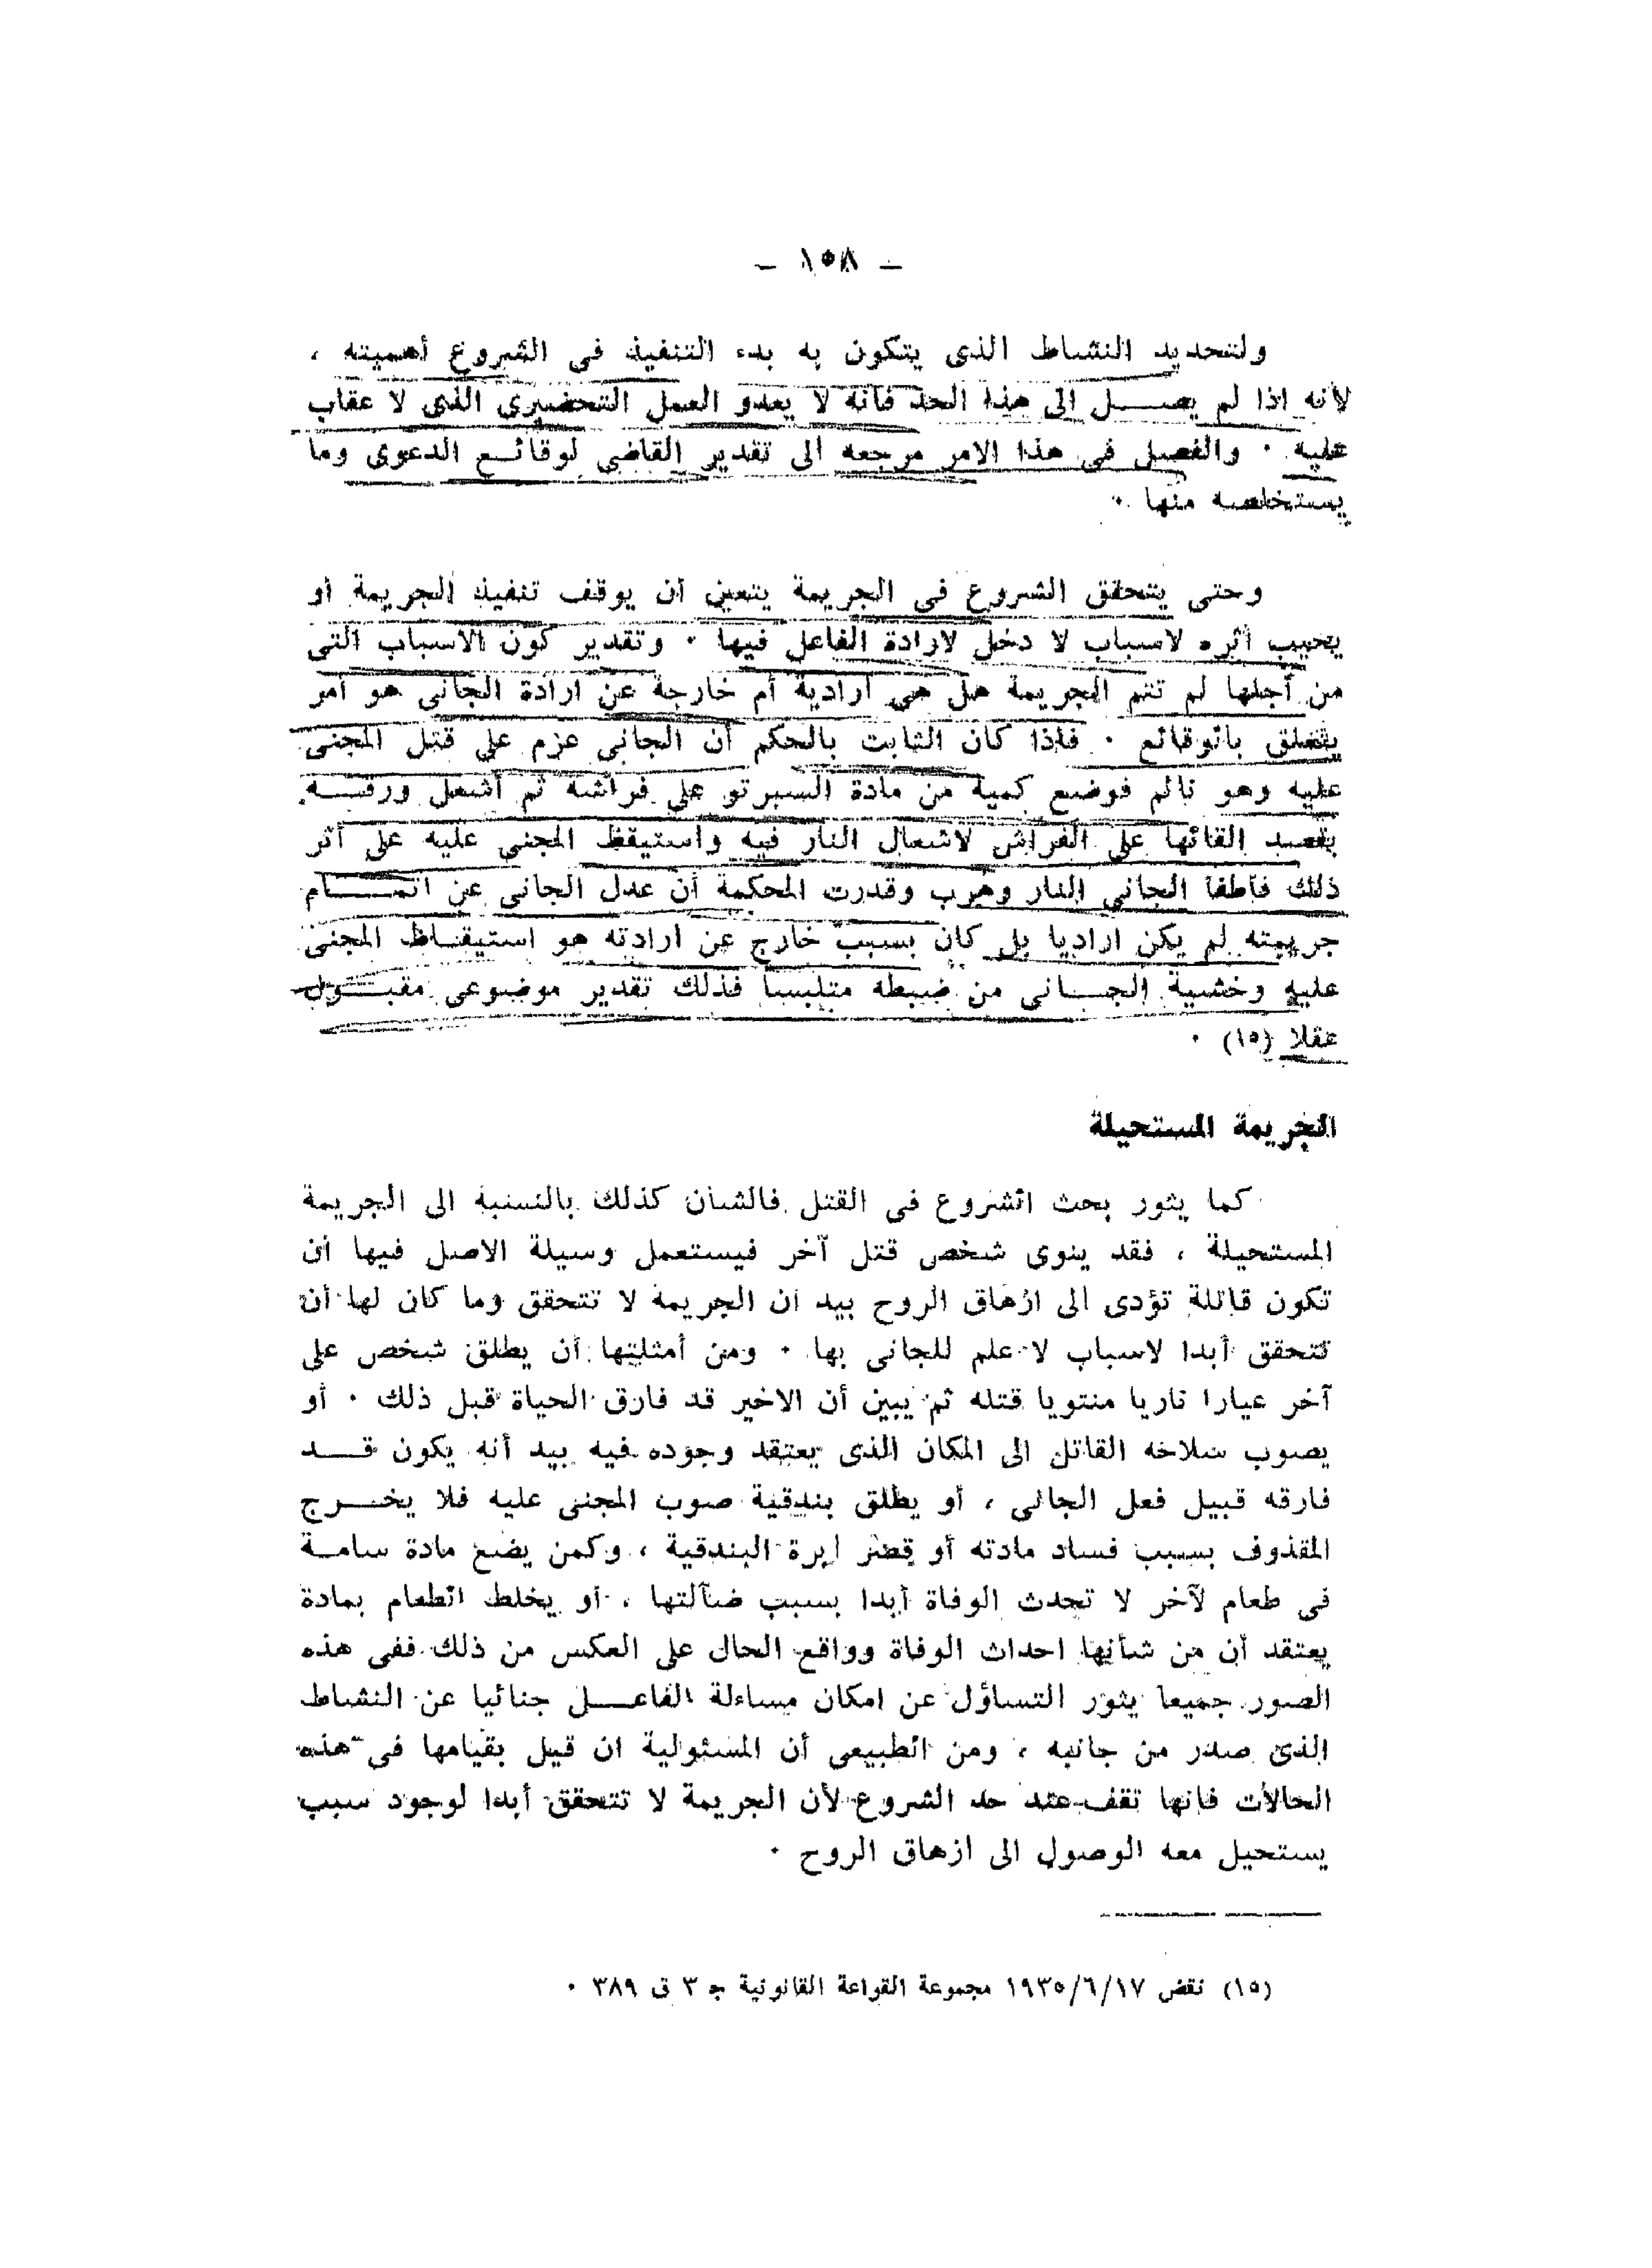 – ١٥٨ –
ولتحديد النشاط الذى يتكون به بدء التنفيذ فى الشروع أهميته ،
لأنه اذا لم يصل الى هذا الحد فانه لا يعدو العمل التحضيرى الذى لا عقاب
عليه ٠ والفصل فى هذا الامر مرجعه الى تقدير القاضى لوقائع الدعوى وما
يستخلصه منها ٠
وحتى يتحقق الشروع فى الجريمة يتعين أن يوقف تنفيذ الجريمة أو
يخيب أثره لاسباب لا دخل لارادة الفاعل فيها ٠ وتقدير كون الاسباب التى
من أجلها لم تتم الجريمة هل هى ارادية أم خارجة عن ارادة الجانى هو أمر
يتعلق بالوقائع ٠ فاذا كان الثابت بالحكم أن الجانى عزم على قتل المجنى
عليه وهو نائم فوضع كمية من مادة السبرتو على فراشه ثم أشعل ورقة
بقصد القائها على الفراش لاشعال النار فيه واستيقظ المجنى عليه على أثر
ذلك فأطفأ الجانى النار وهرب وقدرت المحكمة أن عدل الجانى عن اتمام
جريمته لم يكن اراديا بل كان بسبب خارج عن ارادته هو استيقاظ المجنى
عليه وخشية الجانى من ضبطه متلبسا فذلك تقدير موضوعى مقبول
عقلا (١٥) ٠
الجريمة المستحيلة
كما يثور بحث الشروع فى القتل فالشأن كذلك بالنسبة الى الجريمة
المستحيلة ، فقد ينوى شخص قتل آخر فيستعمل وسيلة الاصل فيها أن
تكون قاتلة تؤدى الى ازهاق الروح بيد أن الجريمة لا تتحقق وما كان لها أن
تتحقق أبدا لاسباب لا علم للجانى بها ٠ ومن أمثلتها أن يطلق شخص على
آخر عيارا ناريا منتويا قتله ثم يبين أن الاخير قد فارق الحياة قبل ذلك ٠ أو
يصوب سلاحه القاتل الى المكان الذى يعتقد وجوده فيه بيد أنه يكون قد
فارقه قبيل فعل الجانى ، أو يطلق بندقية صوب المجنى عليه فلا يخرج
المقذوف بسبب فساد مادته أو قصر ابرة البندقية ، وكمن يضع مادة سامة
فى طعام لآخر لا تحدث الوفاة أبدا بسبب ضآلتها ، أو يخلط الطعام بمادة
يعتقد أن من شأنها احداث الوفاة وواقع الحال على العكس من ذلك ففى هذه
الصور جميعا يثور التساؤل عن امكان مساءلة الفاعل جنائيا عن النشاط
الذى صدر من جانبه ، ومن الطبيعى أن المسئولية ان قيل بقيامها فى هذه
الحالات فانها تقف عند حد الشروع لأن الجريمة لا تتحقق أبدا لوجود سبب
يستحيل معه الوصول الى ازهاق الروح ٠
(١٥) نقض ١٩٣٥/٦/١٧ مجموعة القواعة القانونية ج ٣ ق ٣٨٩ ٠